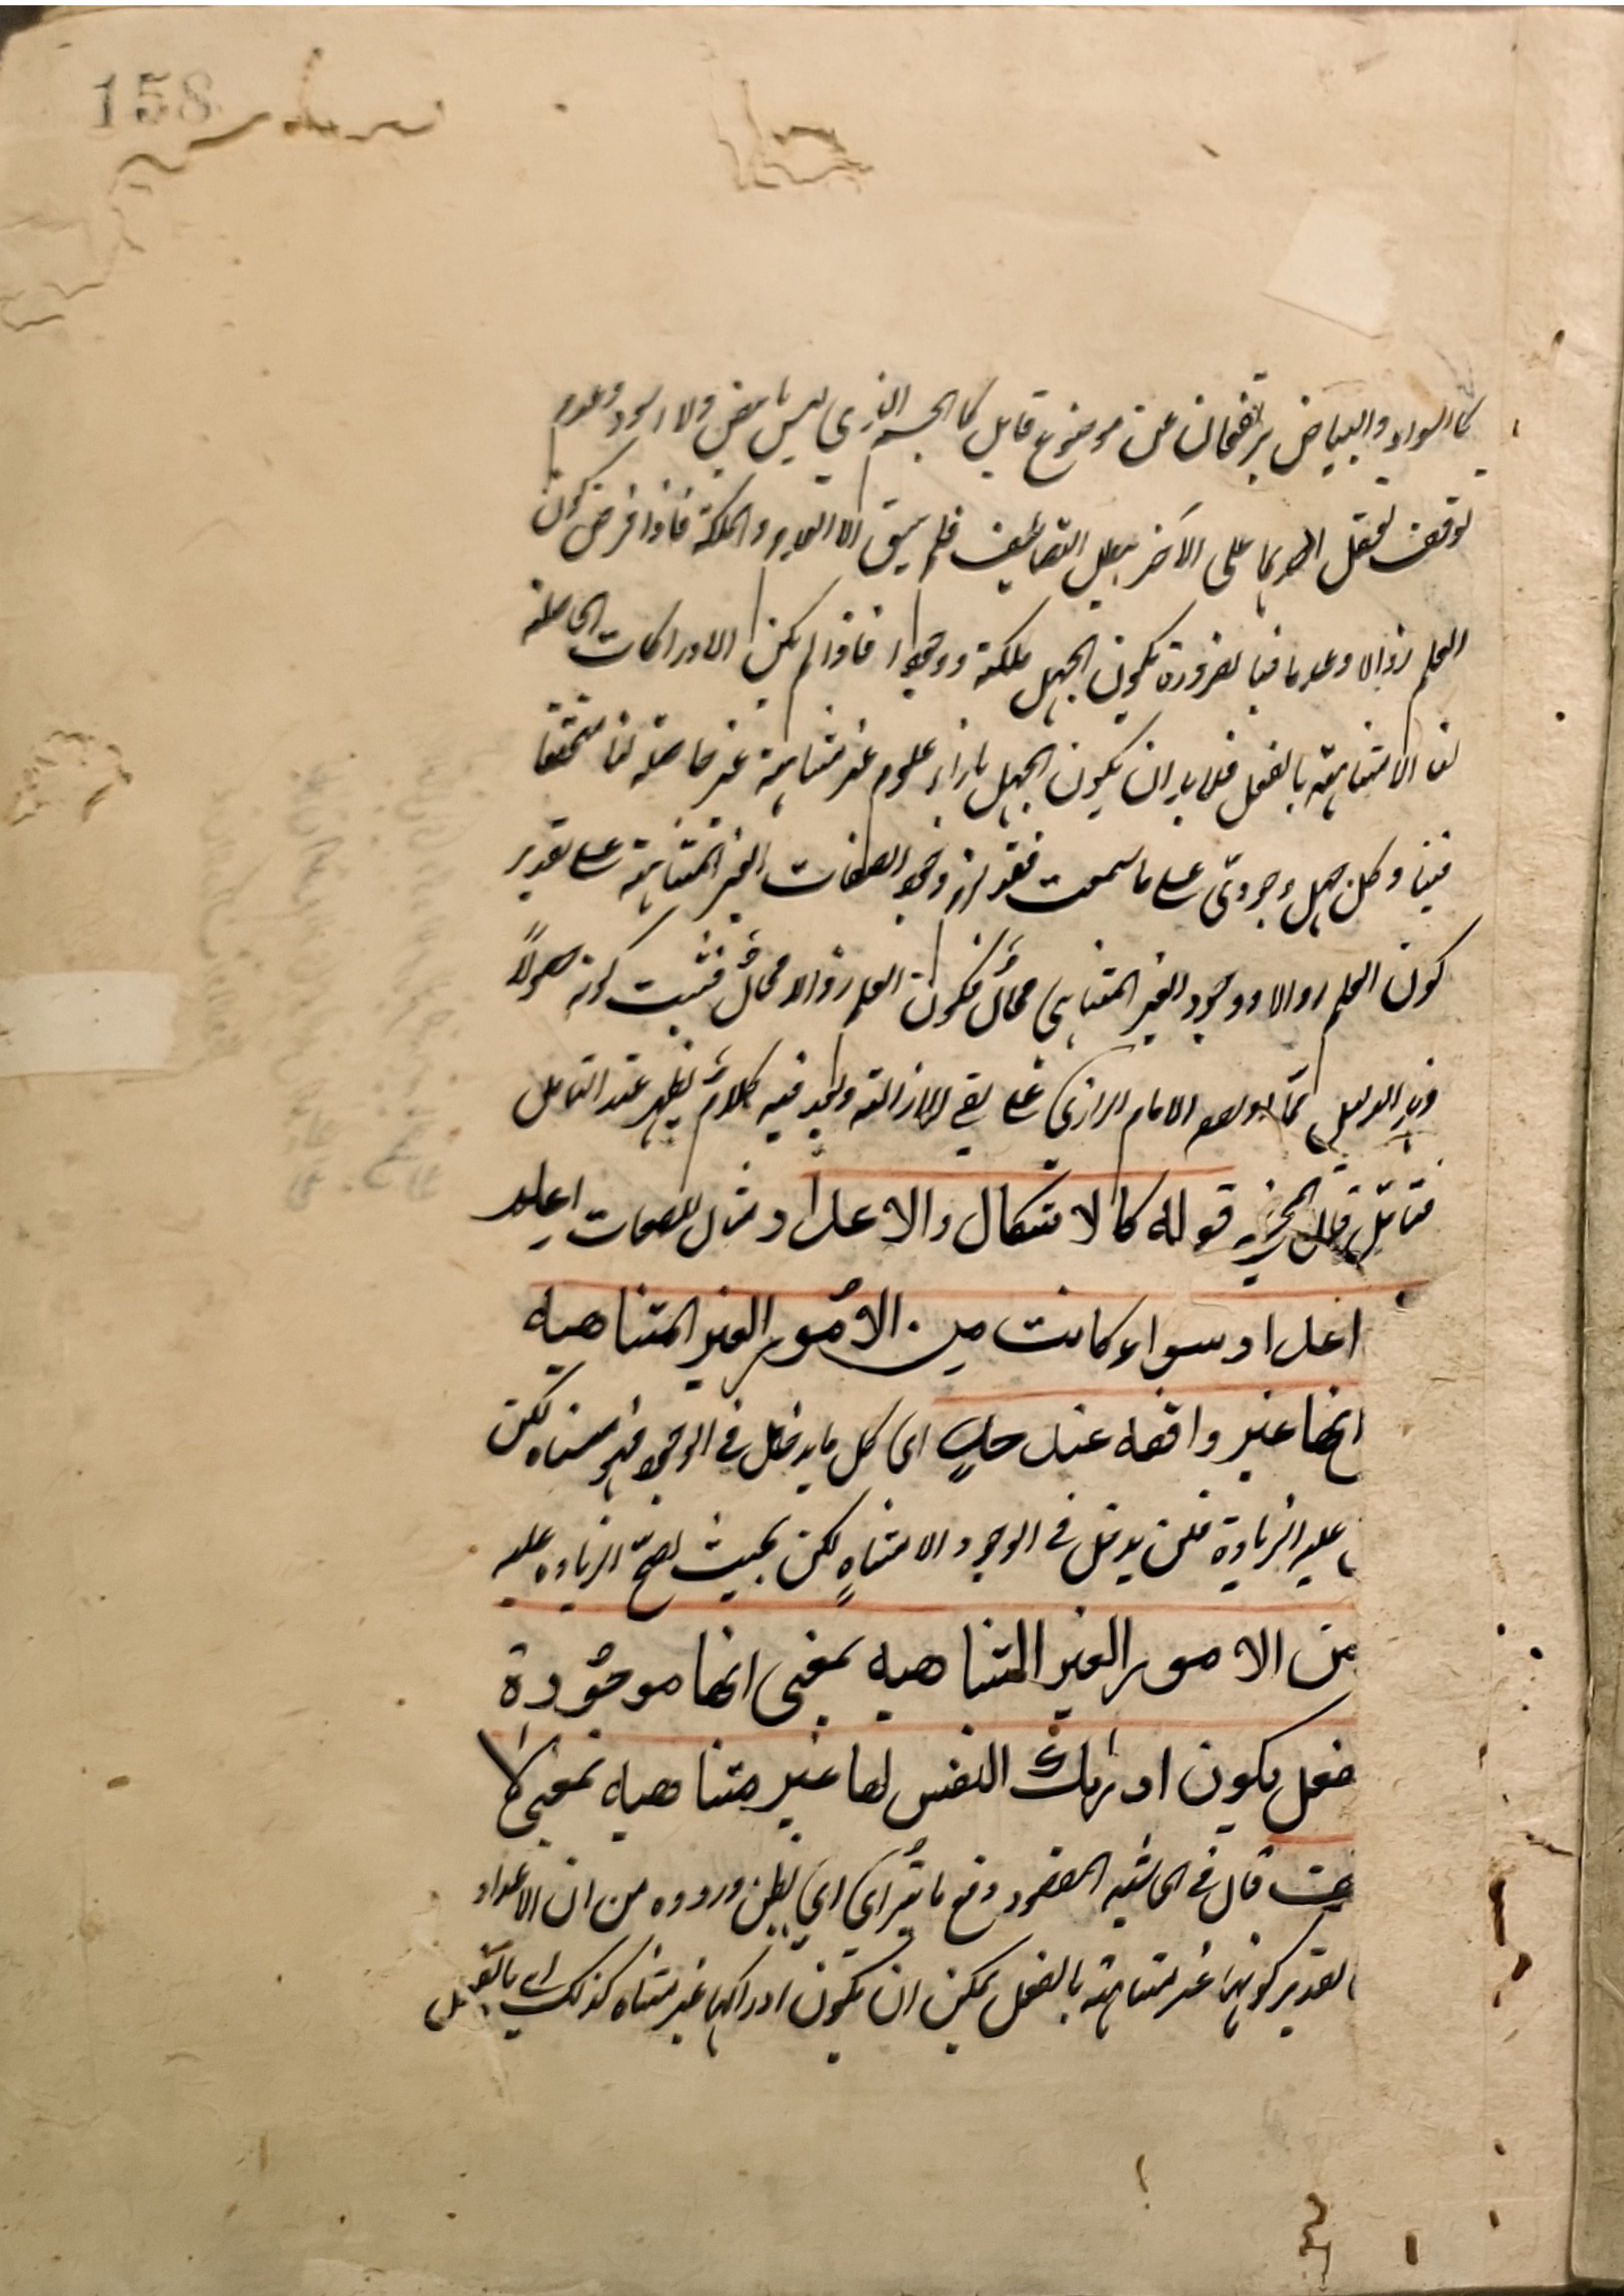 158
كالسواد والبياض يرتفعان عن موضوع قابل كالجسم الذي ليس بابيض ولا اسود وعدم
توقف تعقل احدهما على الآخر يبطل التضايف فلم يبق الا العدم والملكة فاذا فرض كون
العلم زوالا وعدما فبالضرورة يكون الجهل ملكة ووجودا فاذا لم يكن الادراكات الحاصلة
لنا الا متناهية بالفعل فلا بد ان يكون الجهل بازاء علوم غير متناهية غير حاصلة لنا متحققا
فينا وكل جهل وجودي على ما سمعت فقد لزم وجود الصفات الغير المتناهية على تقدير
كون العلم زوالا ووجود الغير المتناهي محال فكون العلم زوالا محال فثبت كونه حصولا
وهذا الدليل مما الامام الرازي على نفي الازالة ولي فيه كلام يظهر عند التامل
فتامل قال قوله كالاشكال والاعداد مثال للصفات اعلم
اعداد سواء كانت من الامور الغير المتناهيه
انها غير واقفه عند حد اى كل ما يدخل في الوجود فهو متناه لكن
عليه الزيادة فلن يدخل في الوجود الا متناه لكن بحيث يصح الزيادة عليه
من الامور الغير المتناهيه بمعنى انها موجودة
فعل يكون ادراك النفس لها غير متناهيه بمعنى لا
قال في الحاشيه المقصود دفع ما يترأى اى يظن وروده من ان الاعداد
تقدير كونها غير متناهية بالفعل يمكن ان يكون ادراكها غير متناه كذلك اے بالفعل